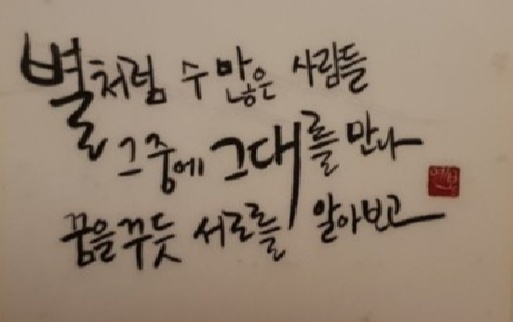 별처럼 수많은 사람들
그중에 그대를 만나
꿈을꾸듯 서로를 알아보고